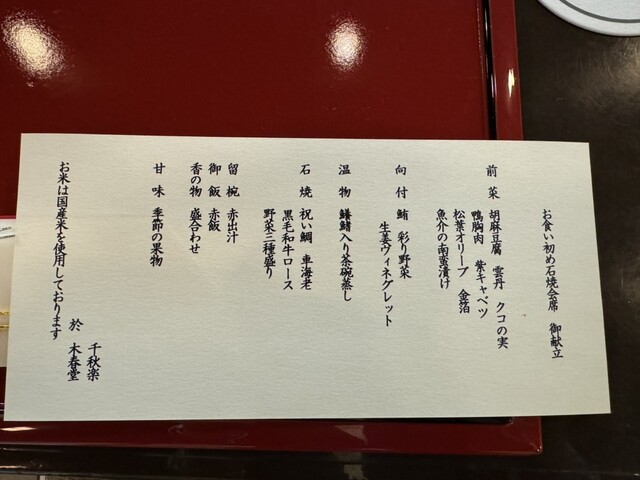 お食い初め石焼会席　御献立
前菜　胡麻豆腐　雲丹　クコの実
鴨胸肉　紫キャベツ
松葉オリーブ　金箔
魚介の南蛮漬け
向付　鮪　彩り野菜
生姜ヴィネグレット
温物　鱶鰭入り茶碗蒸し
石焼　祝い鯛　車海老
黒毛和牛ロース
野菜三種盛り
留椀　赤出汁
御飯　赤飯
香の物　盛合わせ
甘味　季節の果物
千秋楽
於　木春堂
お米は国産米を使用しております